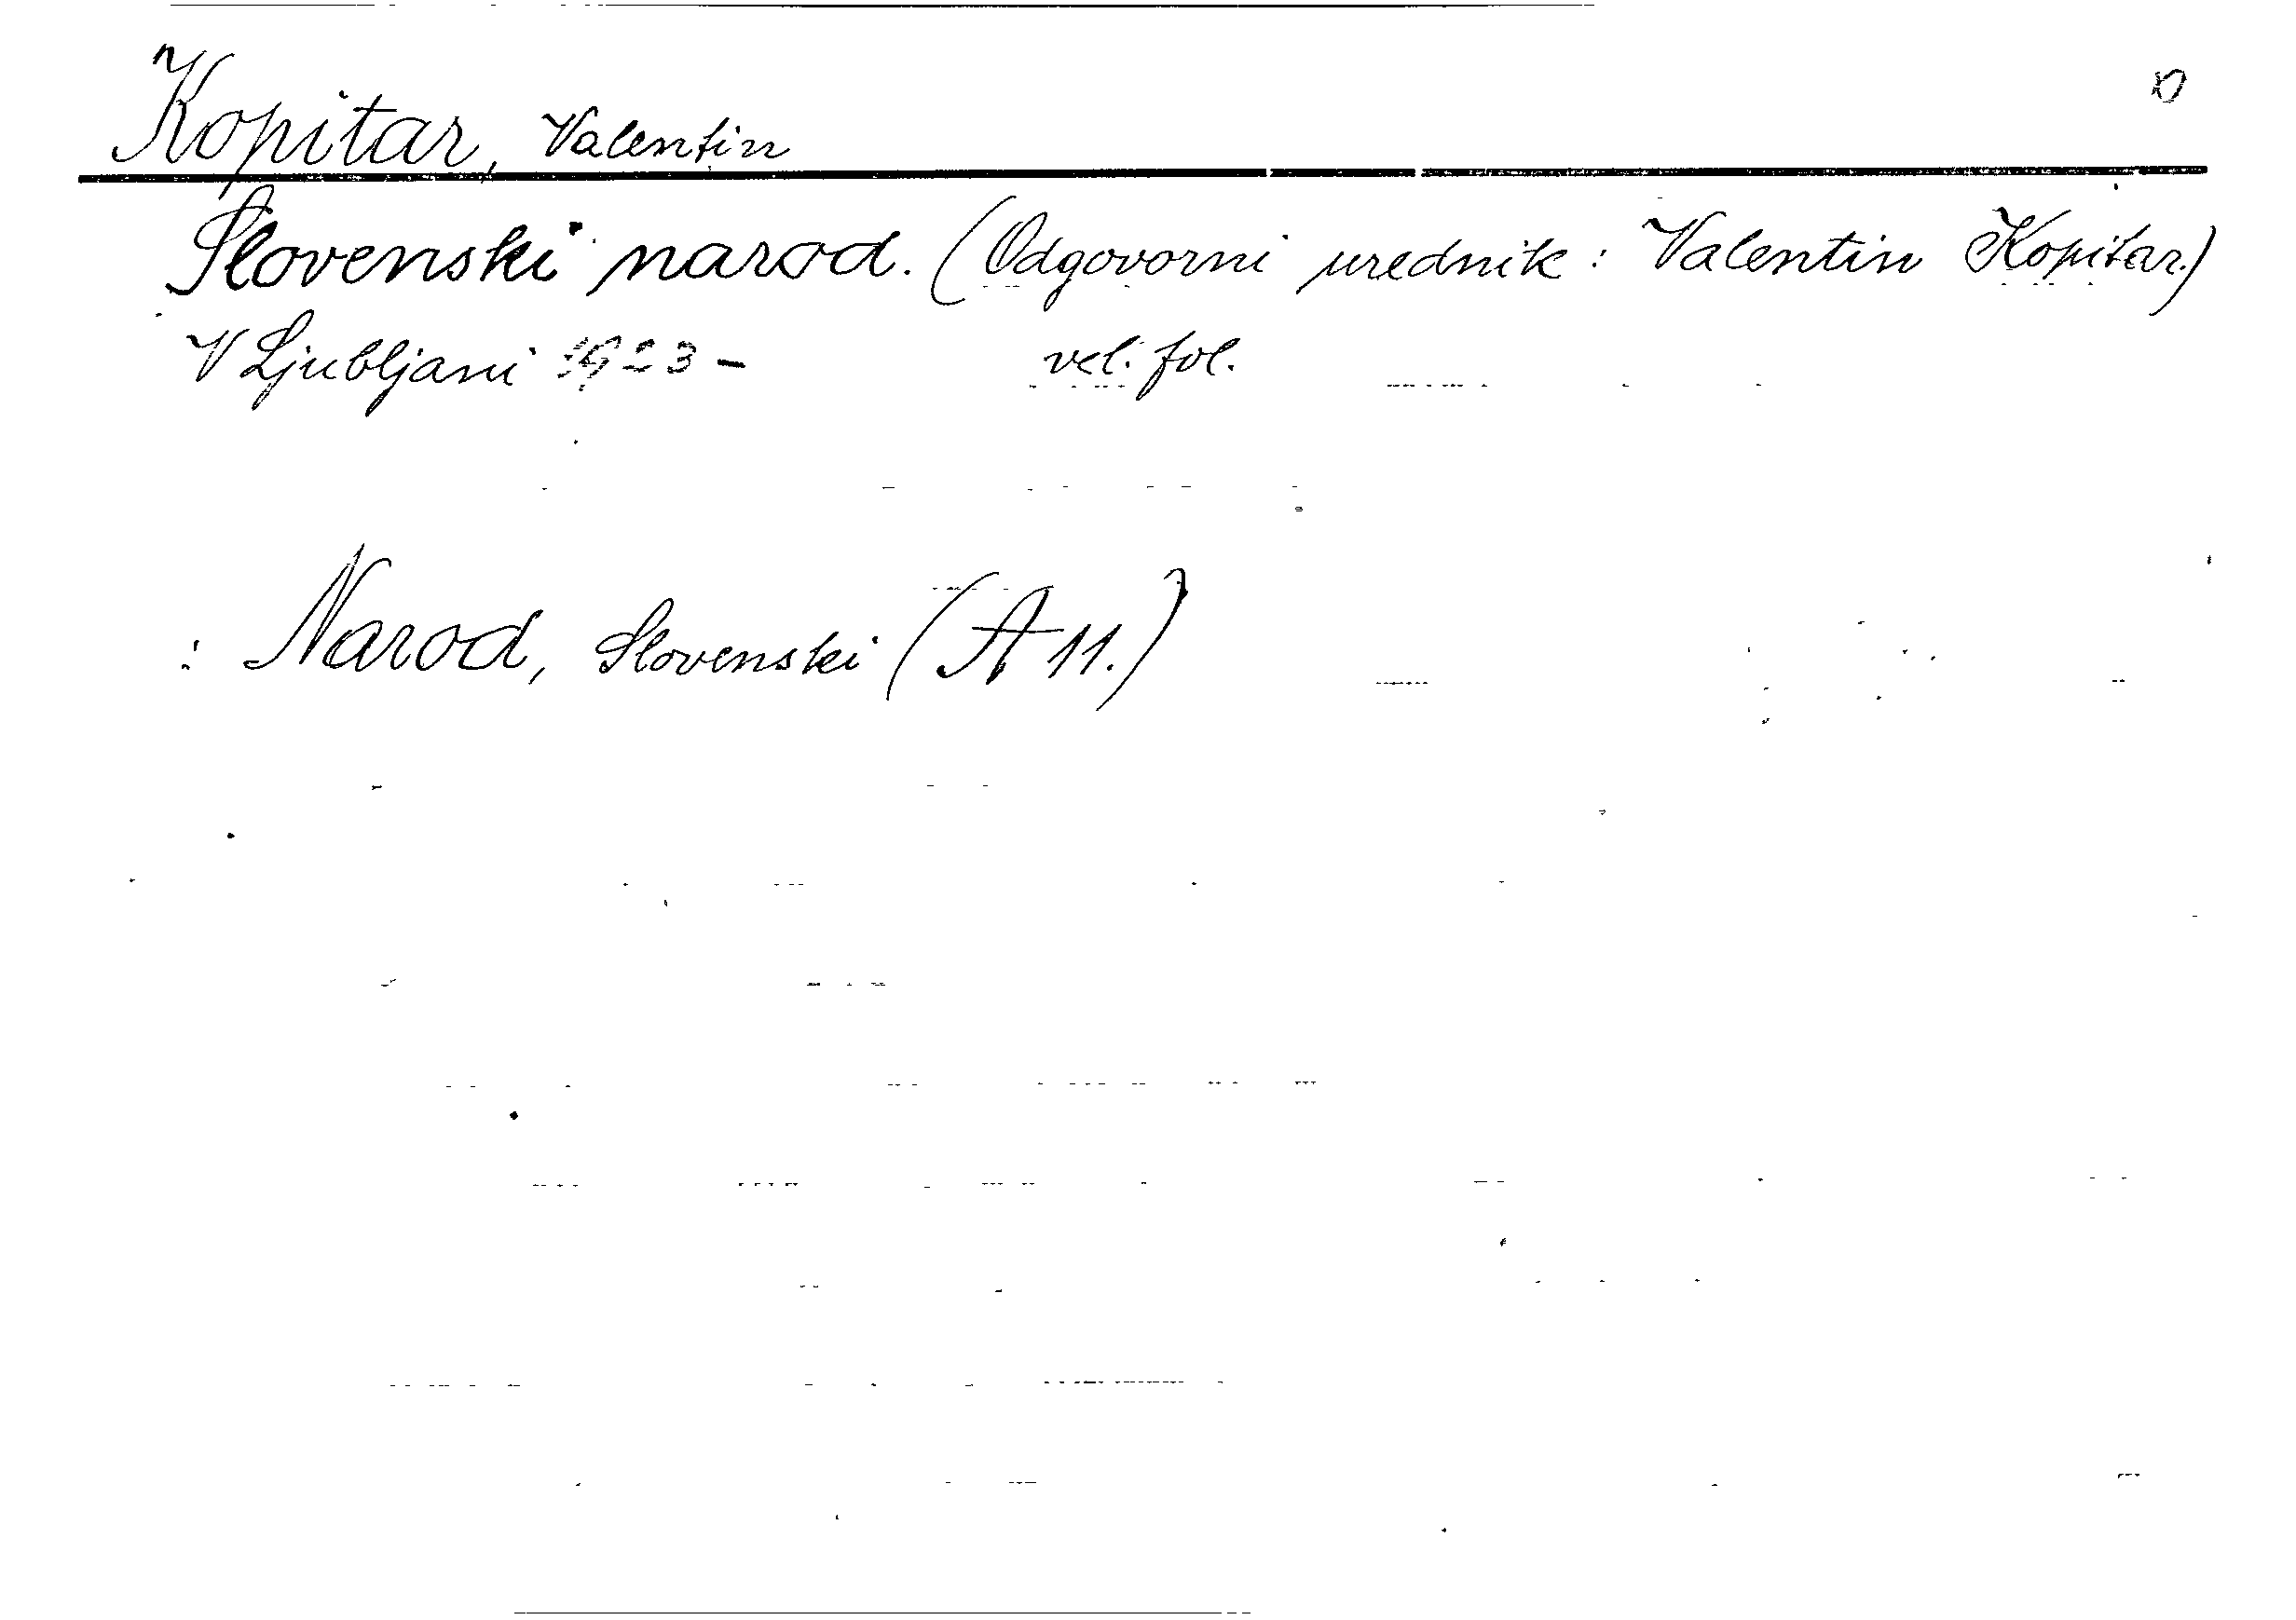 Kopitar, Valentin
Slovenski narod. (Odgovorni urednik: Valentin Kopitar.)
V Ljubljani 1923 – vel. fol.
: Narod, Slovenski (A 11.)